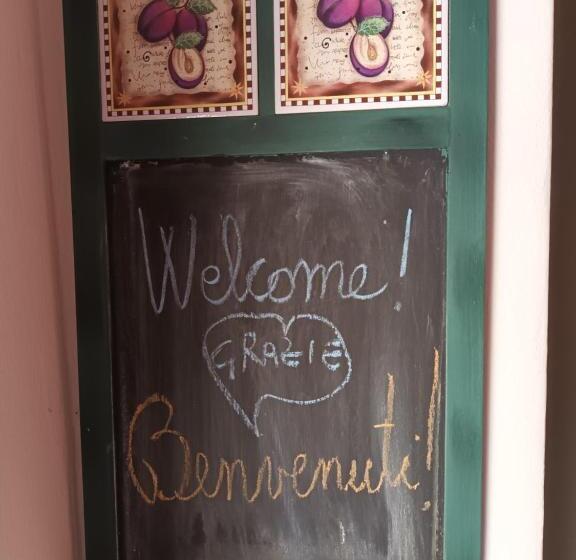 Welcome!
GRAZIE
Benvenuti!